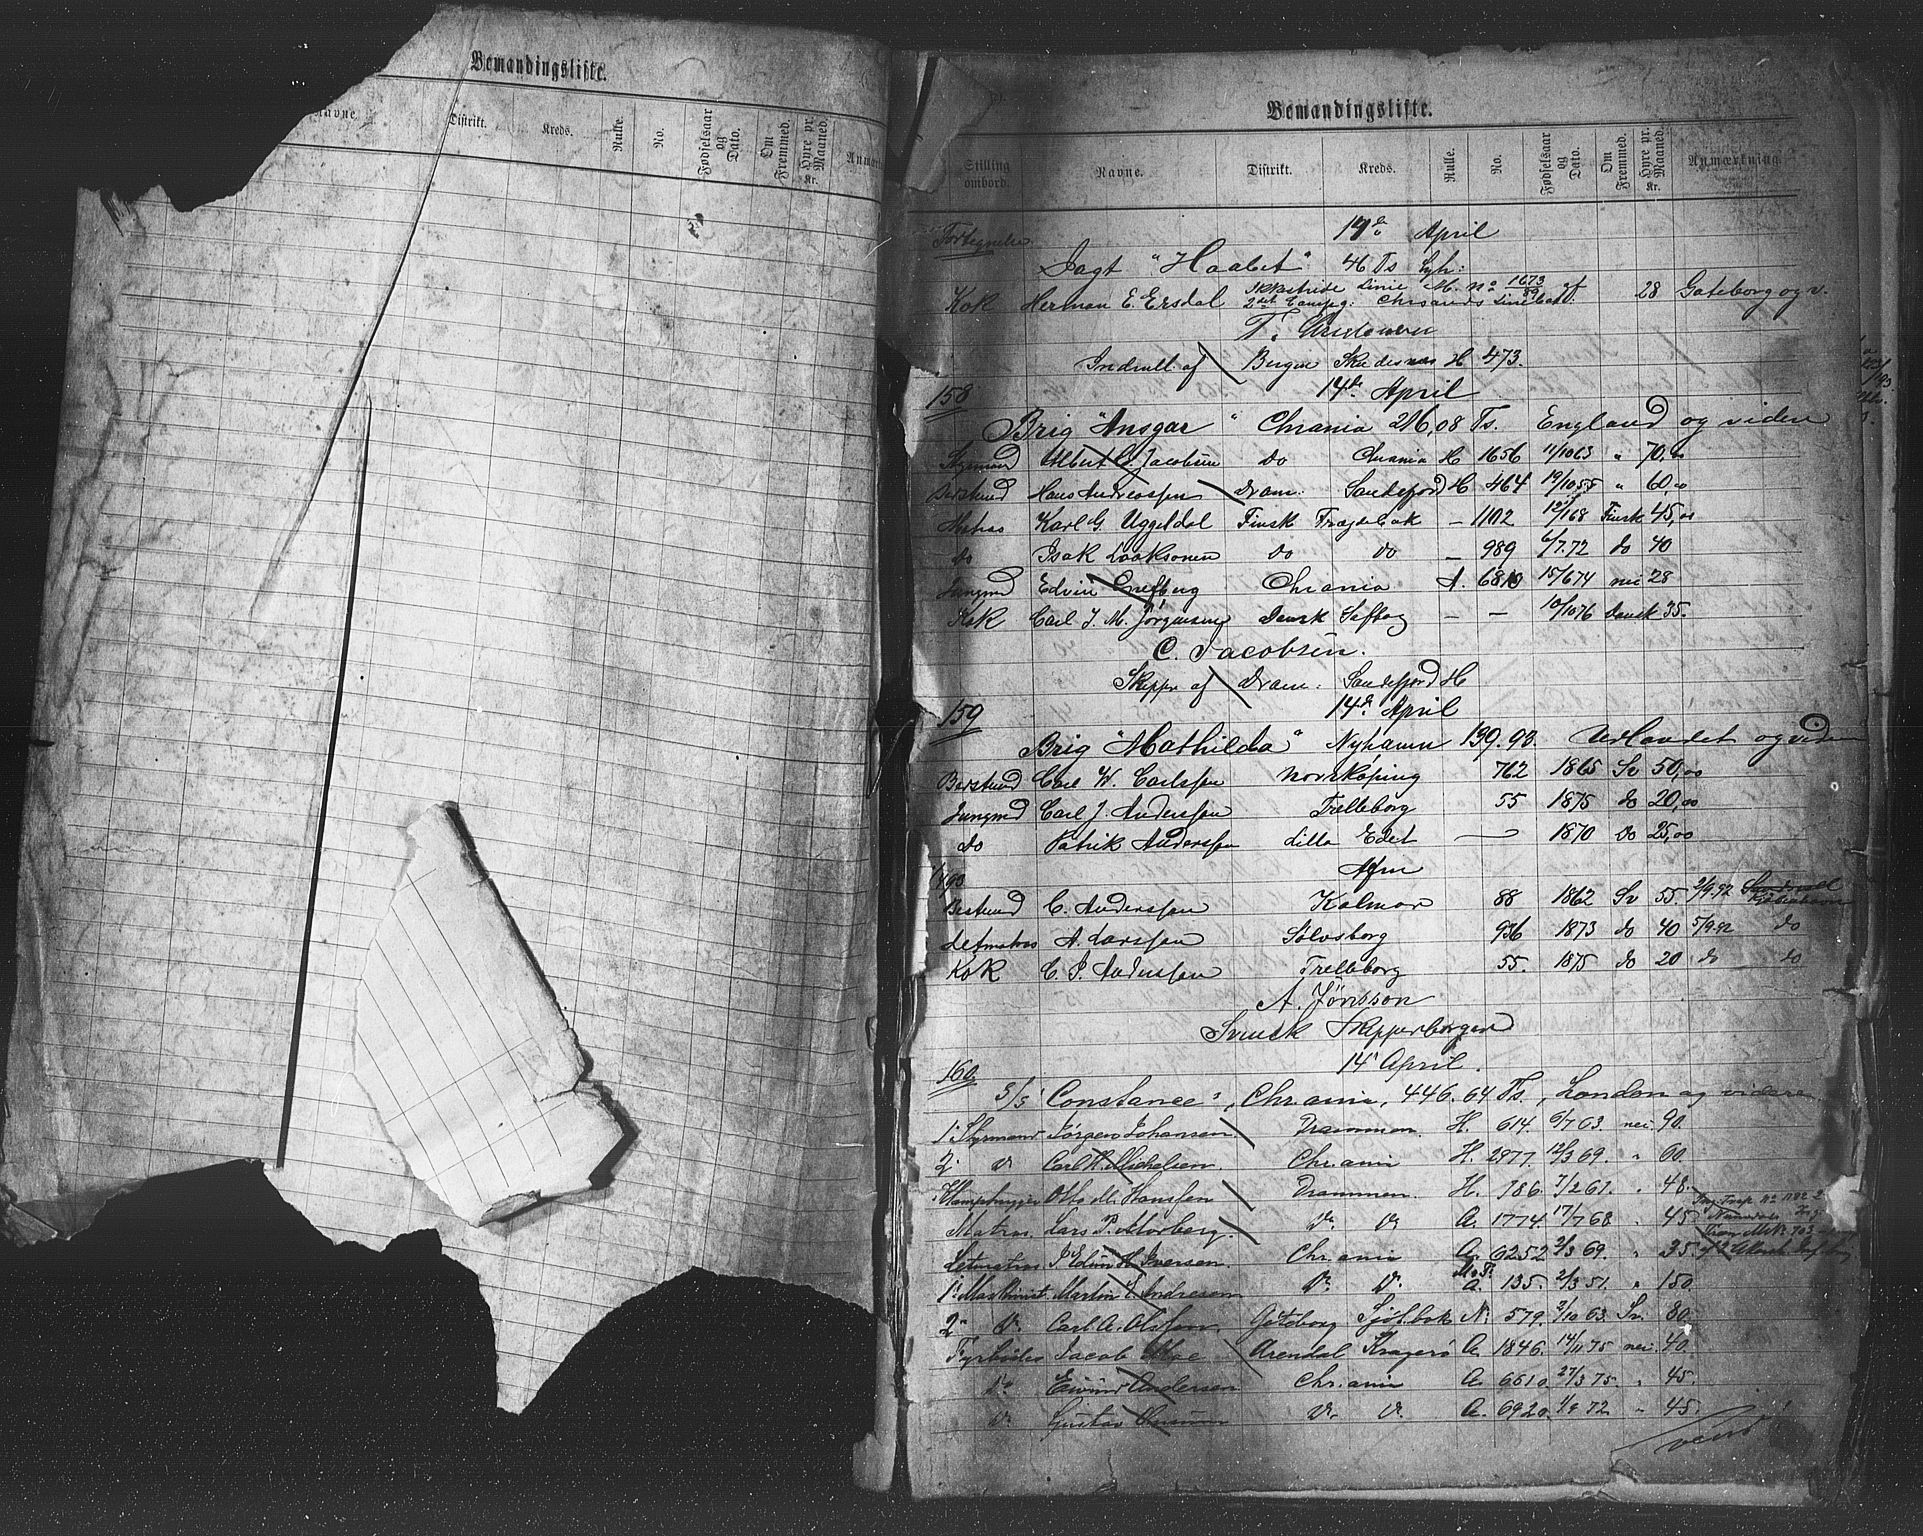 Bemandingsliste.
Navne Distrikt. Kreds. Rulle. No. Fødselsaar og Dato. Om Fremmed. Hyre pr. Maaned. Kr.
Bemandingsliste.
Stilling ombord. Navne. Distrikt. Kreds. Rulle. No. Fødselsaar og Dato. Om Fremmed. Hyre pr. Maaned. Kr. Anmærkning.
Fortegnelse 14de April
Jagt "Haabet" 46 Ts
Kok Herman E. Ersdal Linie M. no 1673/89 af 28 Gøteborg og v.
T. Christensen
Indrull. af Bergen Skudesnæs H 473.
158 14de April
Brig "Ansgar" Chrania 216,08 Ts. England og viden
Styrmand Albert C. Jacobsen do Chrania H 1656 11/10 63 " 70,00
Berstmd Hans Andreassen Dram. Sandefjord H 464 19/10 55 " 60,00
Matros Karl G. Uggeldal Finsk Fragtebok — 1102 12/1 68 Finsk 45,00
do Isak Laaksonen do do — 989 6/7.72 do 40
Jungmd Edvin Engberg Chrania A. 6810 15/6 74 nei 28
Kok Carl J. M. Jørgensen Dansk Søfbog — — 10/10 76 Dansk 35.
C. Jacobsen.
Skipper af Dram. Sandefjord H
159 14de April
Brig "Mathilda" Nyhamn 199.93. Udlandet og viden
Berstmd Carl W. Carlsson Norrköping 762 1865 Sv 50,00
Jungmd Carl J. Andersson Trelleborg 55 1875 do 20,00
do Patrik Andersson Lilla Edet — 1870 do 25,00
Afm
Bestmd C. Andersson Kalmar 88 1862 Sv 55 2/9.92 Kjøbenhavn
Letmatros A. Larsson Sölvsborg 936 1873 do 40 5/9.92 do
Kok C. J. Andersson Trelleborg 55. 1875 do 20 do do
A. Jönsson
Svensk Skipperborger
160 14' April.
S/S "Constance", Chrania, 446.64 Ts., London og videre
1' Styrmand Jørgen Johansen. Drammen. H. 614. 6/7 63. nei. 90.
2' do Carl H. Michelsen. Chrania H. 2877. 12/3 69. " 60.
Otto M. Hansen Drammen. H. 186. 7/2 61. " 48.
Matros. Lars P. Morberg. do do A. 1774. 17/7 68. " 45.
Letmatros J. Edvin H. Iversen. Chrania A. 6252 2/3 69. " 35.
1' Maskinist. Martin E. Andresen do do A. 135. 2/3 51. " 150.
2' do Carl A. Olsson. Gøteborg Sjöf.bok N. 579. 2/10 63. Sv. 80.
Fyrbøder Jacob Moe Arendal Kragerø A. 1846. 14/11 75 nei. 40.
do Eivind Andersen Chrania A. 6610. 27/3 75. " 45.
do Gustav do do A. 6920. 1/9 72 " 45.
vend